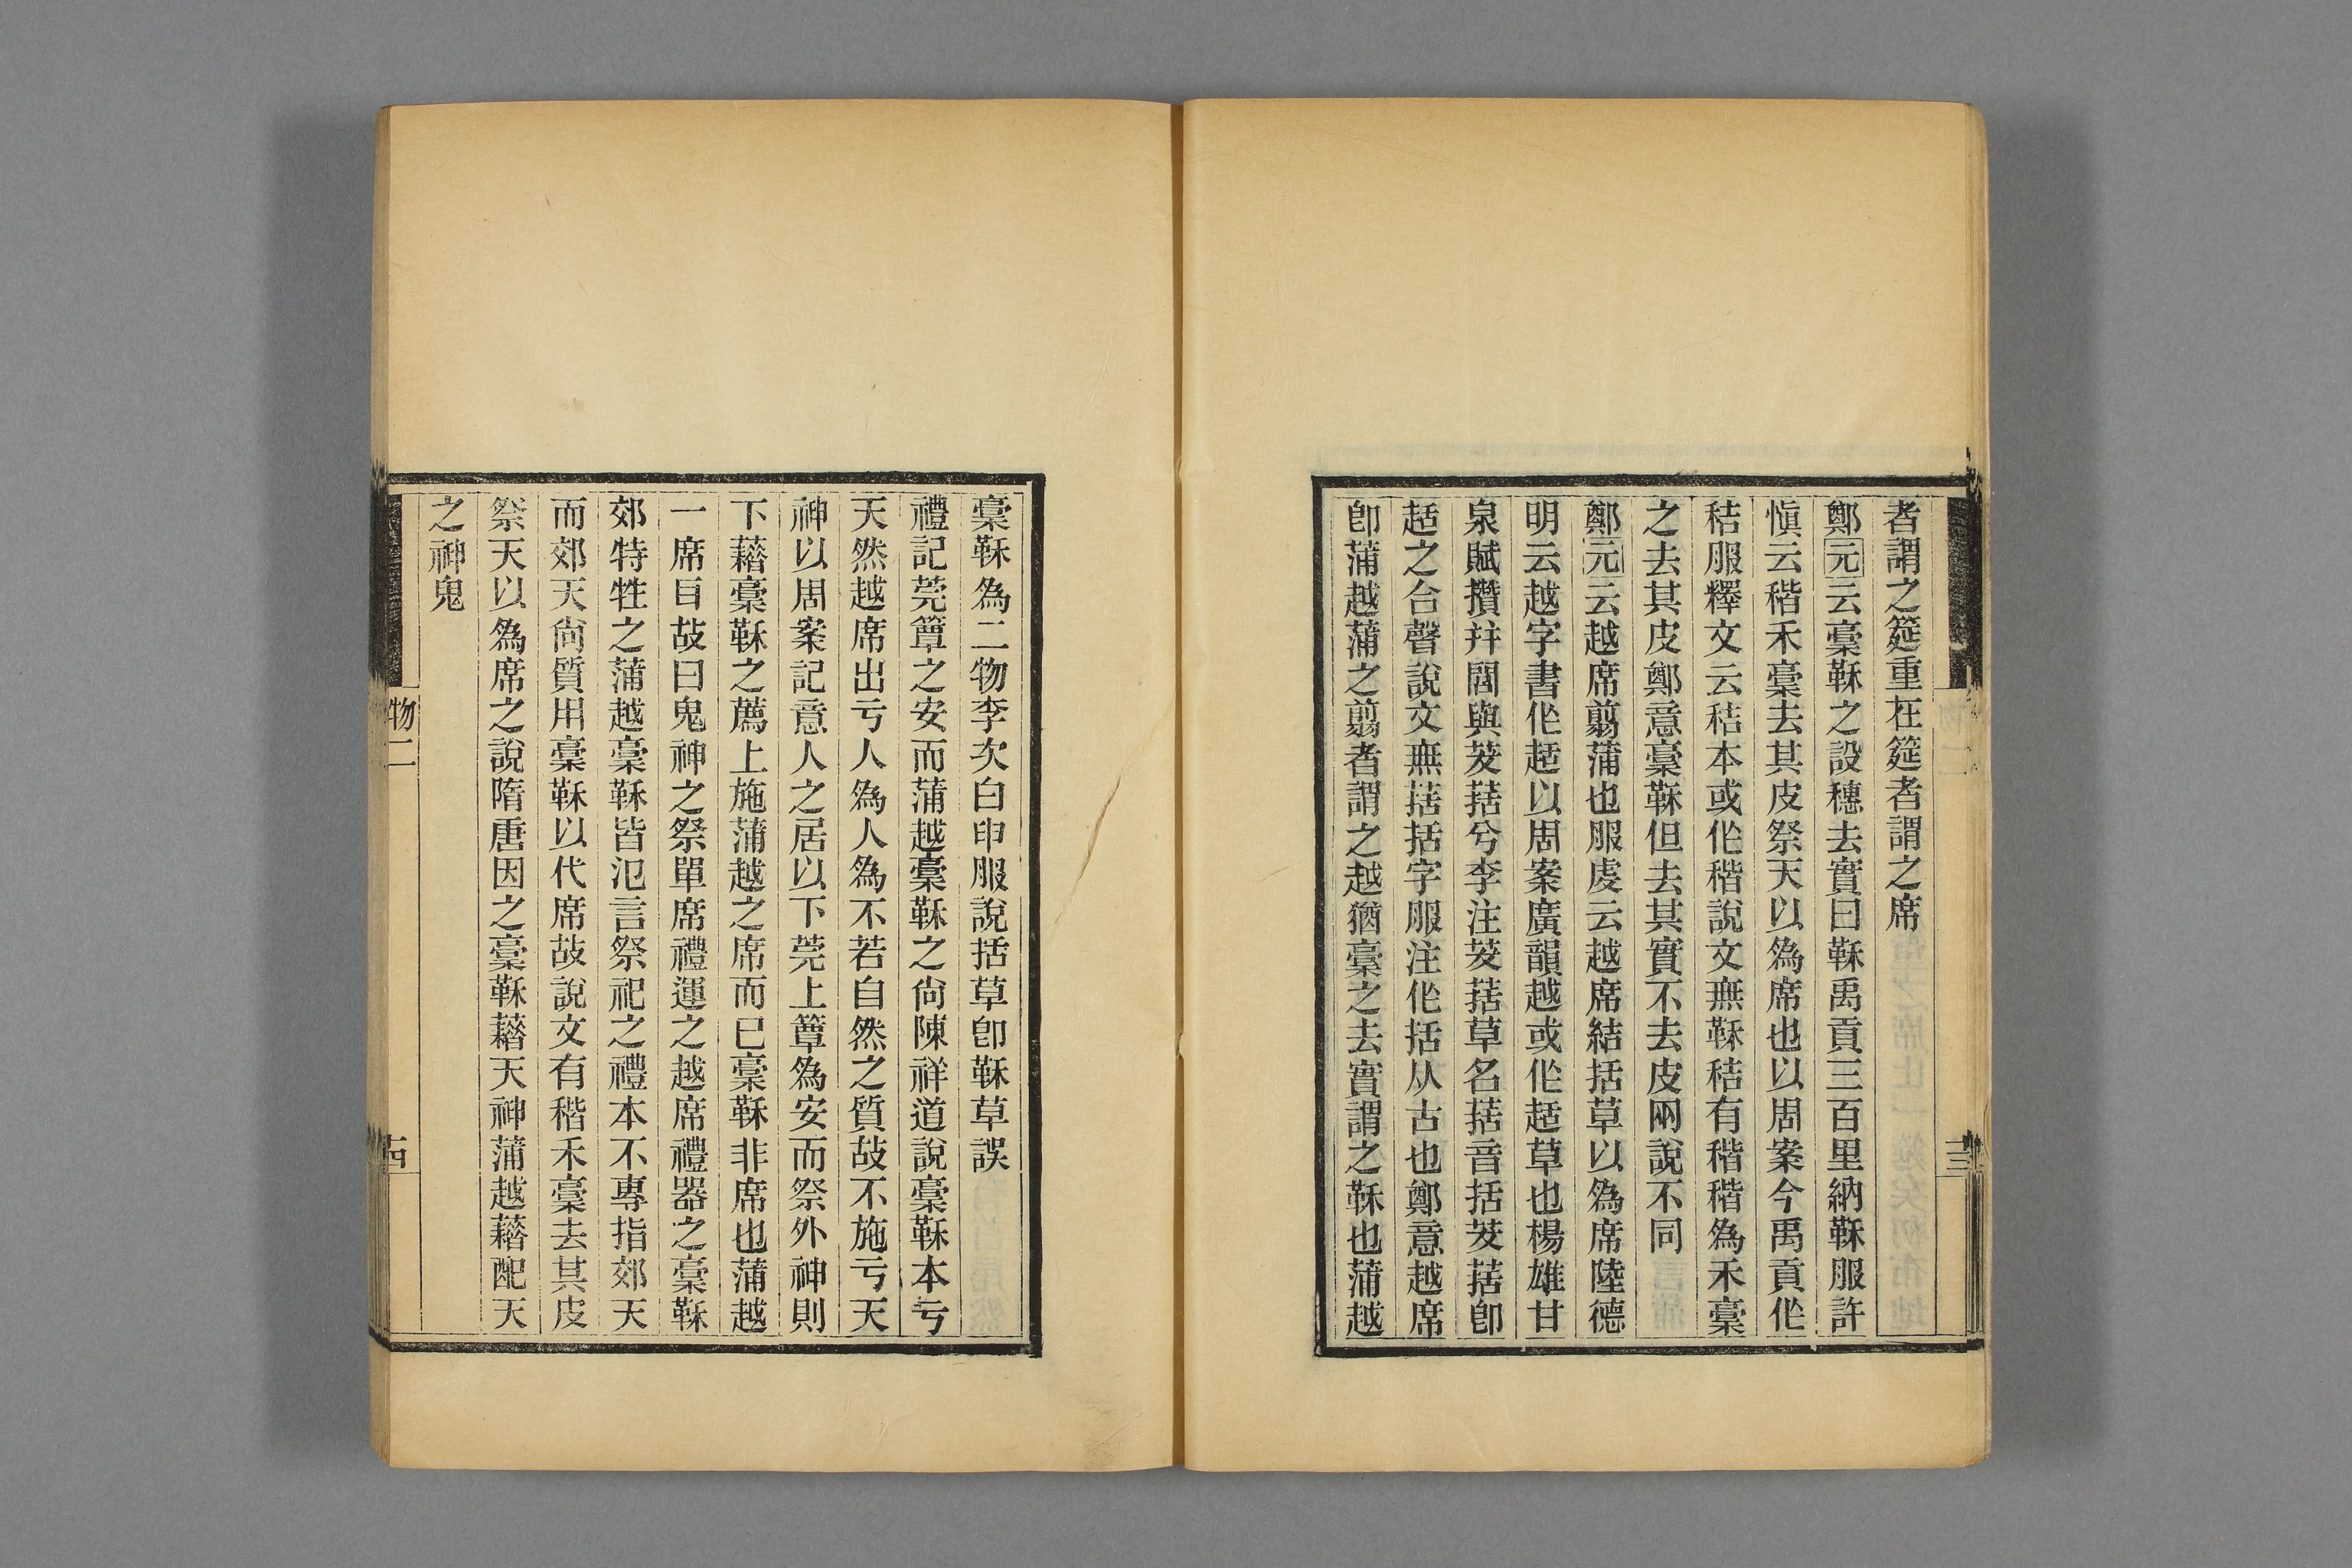 者謂之筵重在筵者謂之席
鄭元云稾鞂之設穗去實曰鞂禹貢三百里納鞂服許
愼云稭禾稾去其皮祭天以爲席也以周案今禹貢作
秸服釋文云秸本或作稭說文無鞂秸有稭稭爲禾稾
之去其皮鄭意稾鞂但去其實不去皮兩說不同
鄭元云越席翦蒲也服虔云越席結括草以爲席陸德
明云越字書作趏以周案廣韻越或作趏草也楊雄甘
泉賦攢幷閭與茇𦯄兮李注茇𦯄草名𦯄音括茇𦯄卽
趏之合聲說文無𦯄括字服注作括从古也鄭意越席
卽蒲越蒲之翦者謂之越猶稾之去實謂之鞂也蒲越
稾鞂爲二物李次白申服說括草卽鞂草誤
禮記莞簟之安而蒲越稾鞂之尙陳祥道說稾鞂本亏
天然越席出亏人爲人爲不若自然之質故不施亏天
神以周案記意人之居以下莞上簟爲安而祭外神則
下藉稾鞂之薦上施蒲越之席而已稾鞂非席也蒲越
一席目故曰鬼神之祭單席禮運之越席禮器之稾鞂
郊特牲之蒲越稾鞂皆氾言祭祀之禮本不專指郊天
而郊天尙質用稾鞂以代席故說文有稭禾稾去其皮
祭天以爲席之說隋唐因之稾鞂藉天神蒲越藉配天
之神鬼
物二
十四